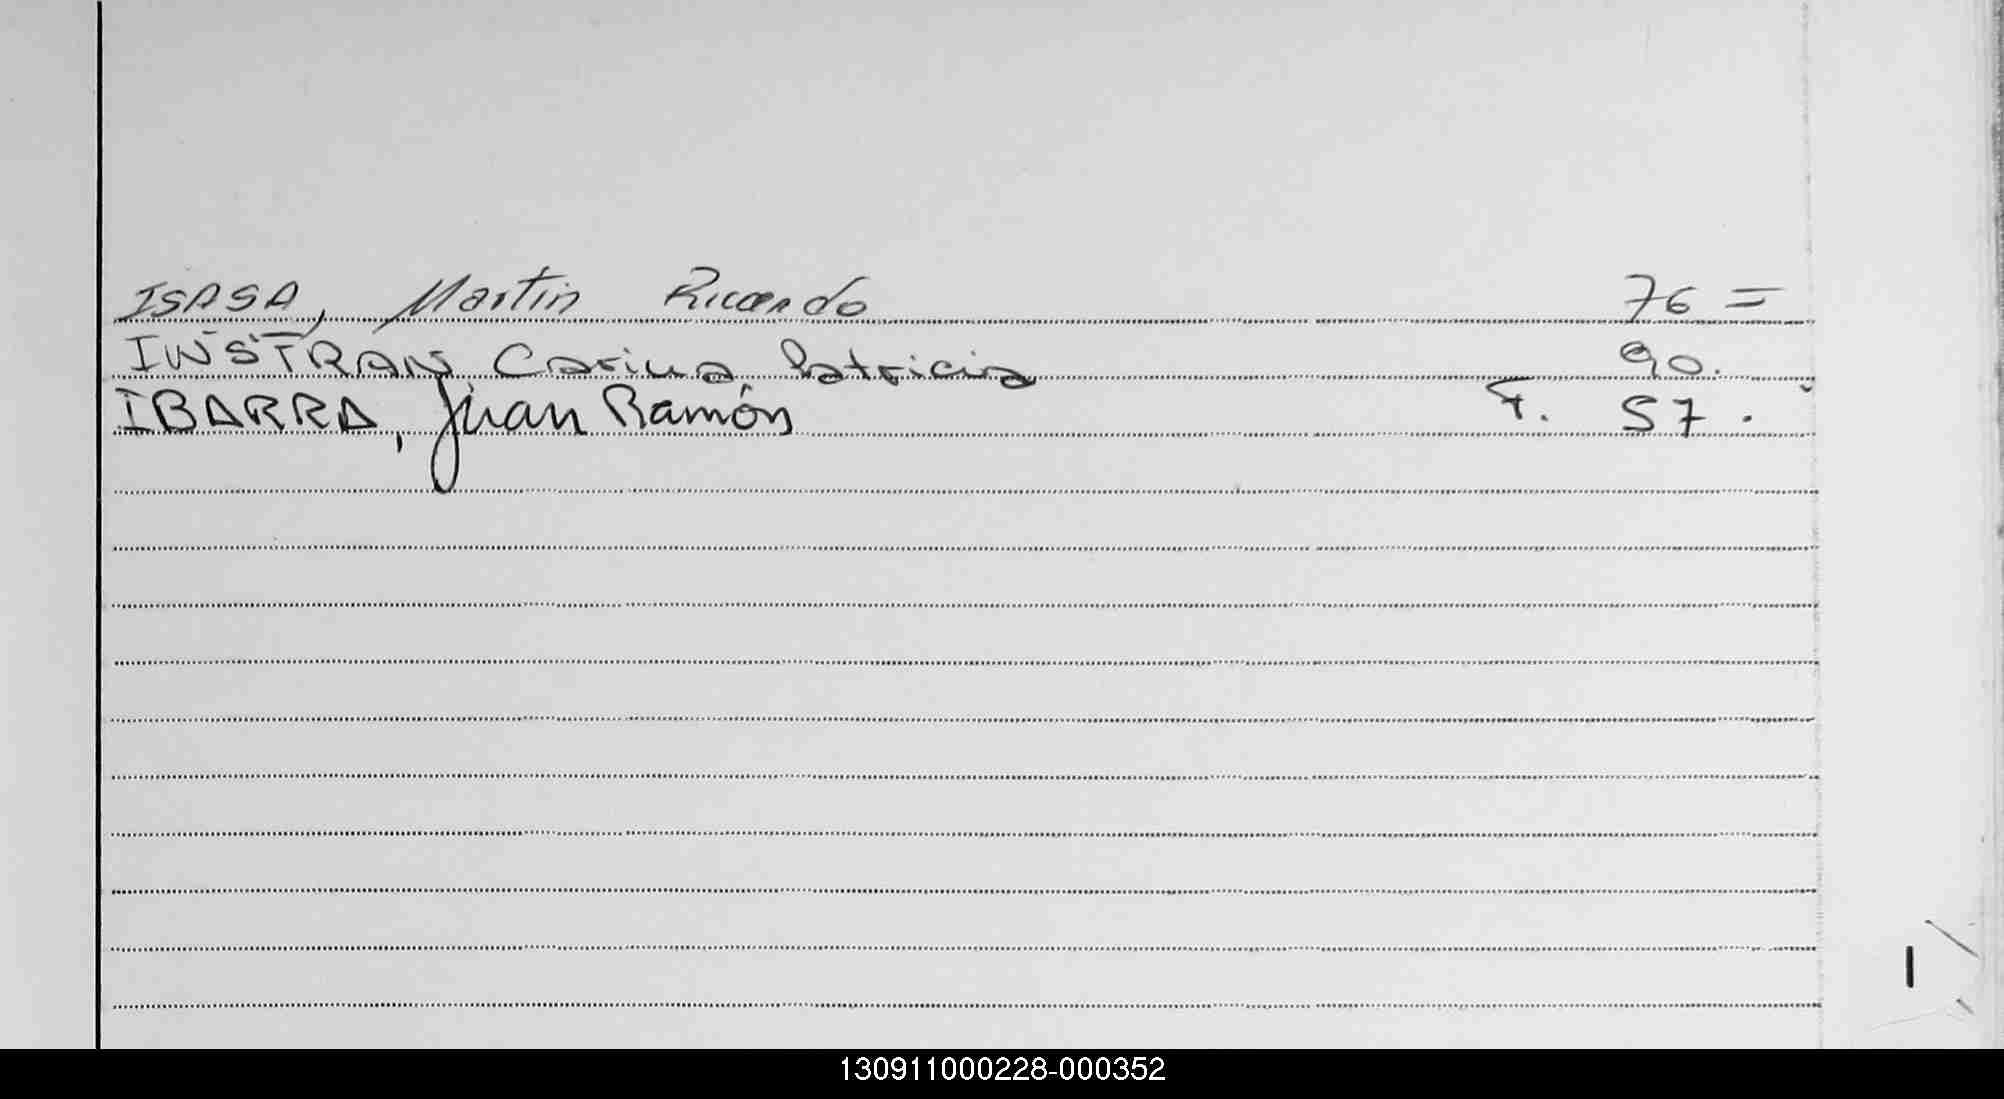 ISASA, Martin Ricardo 76 =
INSTRAN, Carina Patricia 90.
IBARRA, Juan Ramón F. 57.
I
130911000228-000352